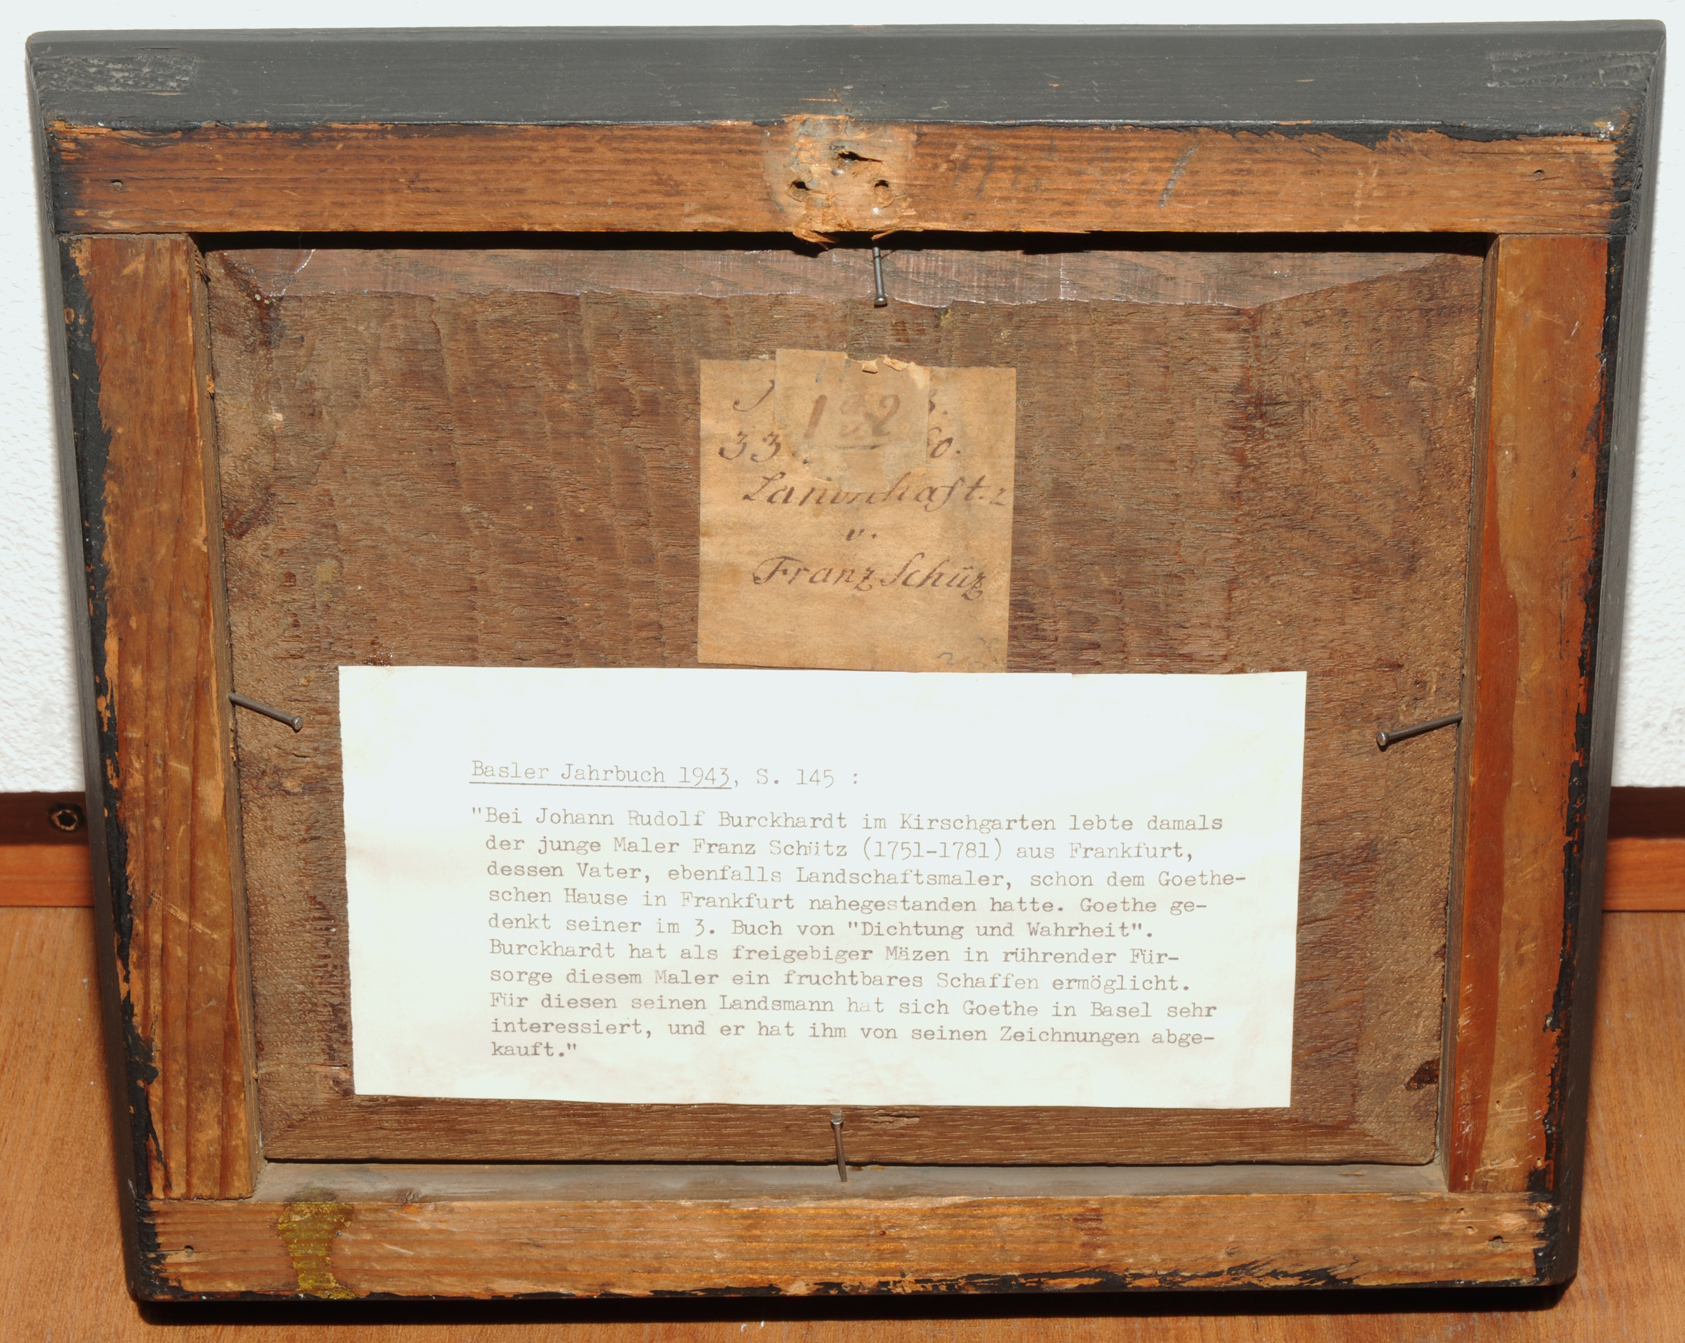 132
33
Franz Schüz
Basler Jahrbuch 1943, S. 145 :
"Bei Johann Rudolf Burckhardt im Kirschgarten lebte damals
der junge Maler Franz Schütz (1751-1781) aus Frankfurt,
dessen Vater, ebenfalls Landschaftsmaler, schon dem Goethe-
schen Hause in Frankfurt nahegestanden hatte. Goethe ge-
denkt seiner im 3. Buch von "Dichtung und Wahrheit".
Burckhardt hat als freigebiger Mäzen in rührender Für-
sorge diesem Maler ein fruchtbares Schaffen ermöglicht.
Für diesen seinen Landsmann hat sich Goethe in Basel sehr
interessiert, und er hat ihm von seinen Zeichnungen abge-
kauft."